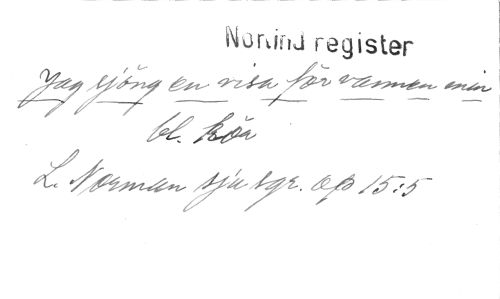 Norlind register
Jag sjöng en visa för vännen min
bl. kör
L. Norman sju sgr. op 15:5